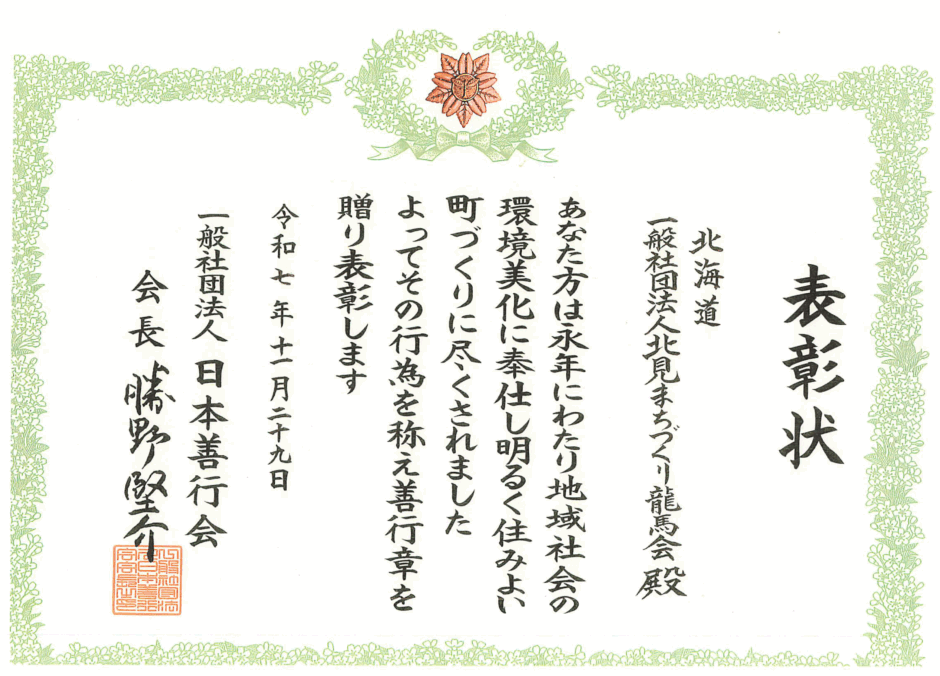 表彰状
北海道
一般社団法人北見まちづくり龍馬会 殿
あなた方は永年にわたり地域社会の
環境美化に奉仕し明るく住みよい
町づくりに尽くされました
よってその行為を称え善行章を
贈り表彰します
令和七年十一月二十九日
一般社団法人 日本善行会
会長 勝野堅介